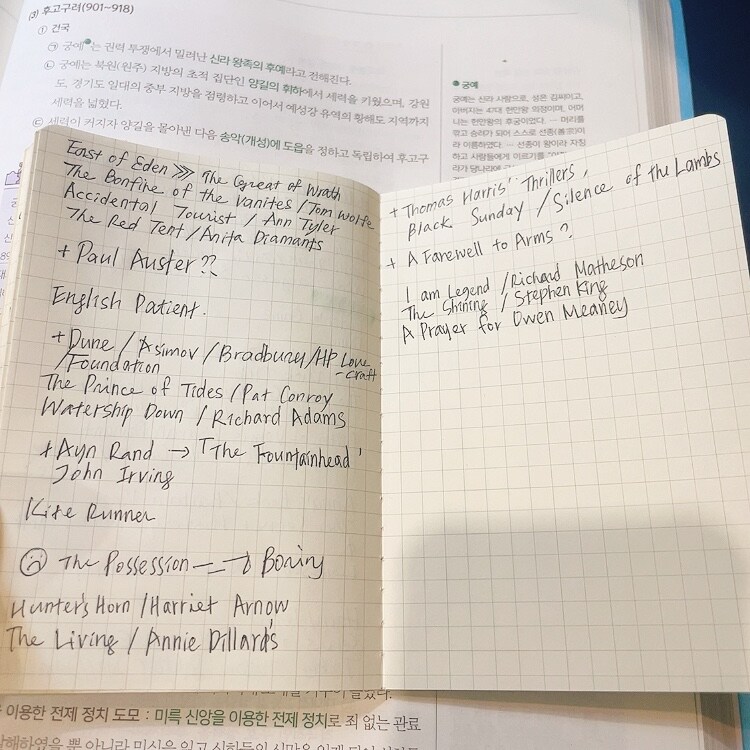 (3) 후고구려(901~918)
① 건국
㉠ 궁예는 권력 투쟁에서 밀려난 신라 왕족의 후예라고 전해진다.
㉡ 궁예는 북원(원주) 지방의 초적 집단인 양길의 휘하에서 세력을 키웠으며, 강원
도, 경기도 일대의 중부 지방을 점령하고 이어서 예성강 유역의 황해도 지역까지
세력을 넓혔다.
㉢ 세력이 커지자 양길을 몰아낸 다음 송악(개성)에 도읍을 정하고 독립하여 후고구
궁예
궁예는 신라 사람으로, 성은 김씨이고,
아버지는 47대 헌안왕 의정이며, 어머
니는 헌안왕의 후궁이었다. … 머리를
깎고 승려가 되어 스스로 선종(善宗)이
라 이름하였다. … 선종이 왕이라 자칭
하고 사람들에게 이르기를
East of Eden >>> The Great of Wrath
The Bonfire of the Vanites / Tom Wolfe
Accidental Tourist / Ann Tyler
The Red Tent / Anita Diamants
+ Paul Auster??
English Patient.
+ Dune / Asimov / Bradbury / HP Love
-craft
/Foundation
The Prince of Tides / Pat Conroy
Watership Down / Richard Adams
+ Ayn Rand → 「The Fountainhead'
John Irving
Kite Runner
The Possession --→ Boring
Hunter's Horn / Harriet Arnow
The Living / Annie Dillard's
+ Thomas Harris' Thrillers,
Black Sunday / Silence of the Lambs
+ A Farewell to Arms?
I am Legend / Richard Matheson
The Shining / Stephen King
A Prayer for Owen Meaney
이용한 전제 정치 도모 : 미륵 신앙을 이용한 전제 정치로 죄 없는 관료